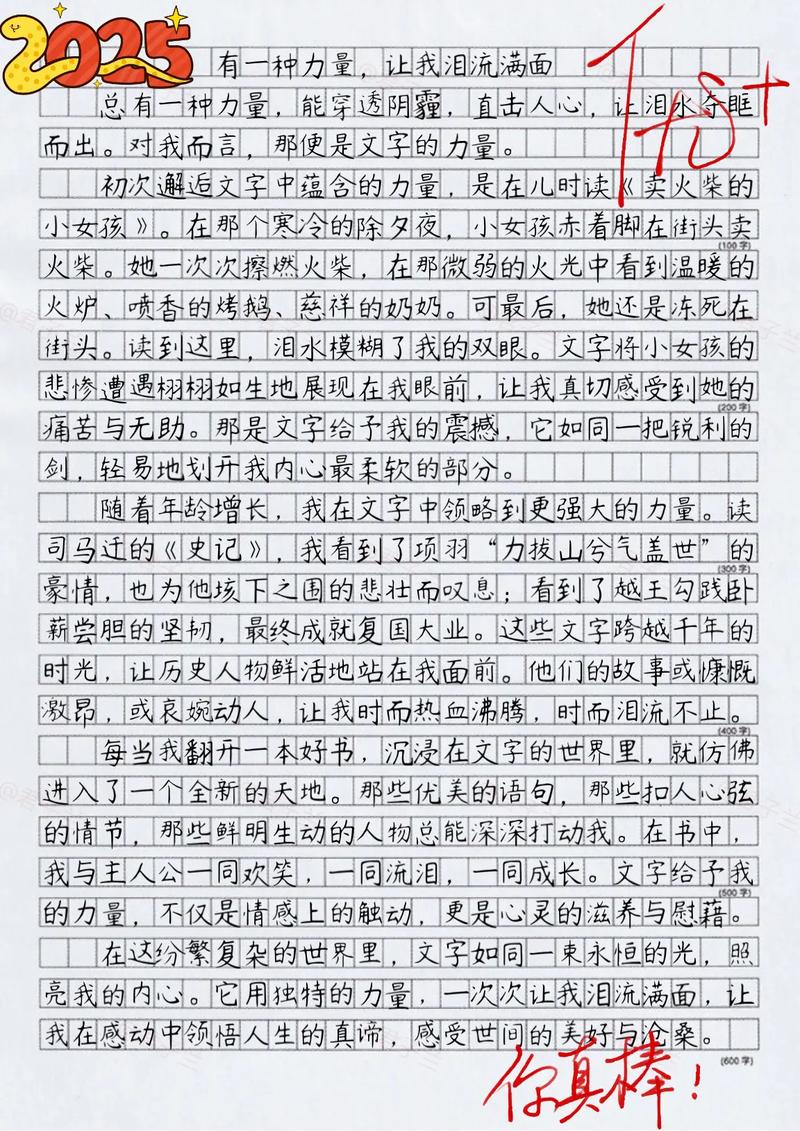 2025
有一种力量，让我泪流满面
优+
总有一种力量，能穿透阴霾，直击人心，让泪水夺眶
而出。对我而言，那便是文字的力量。
初次邂逅文字中蕴含的力量，是在儿时读《卖火柴的
小女孩》。在那个寒冷的除夕夜，小女孩赤着脚在街头卖
(100字)
火柴。她一次次擦燃火柴，在那微弱的火光中看到温暖的
火炉、喷香的烤鹅、慈祥的奶奶。可最后，她还是冻死在
街头。读到这里，泪水模糊了我的双眼。文字将小女孩的
悲惨遭遇栩栩如生地展现在我眼前，让我真切感受到她的
(200字)
痛苦与无助。那是文字给予我的震撼，它如同一把锐利的
剑，轻易地划开我内心最柔软的部分。
随着年龄增长，我在文字中领略到更强大的力量。读
司马迁的《史记》，我看到了项羽“力拔山兮气盖世”的
(300字)
豪情，也为他垓下之围的悲壮而叹息；看到了越王勾践卧
薪尝胆的坚韧，最终成就复国大业。这些文字跨越千年的
时光，让历史人物鲜活地站在我面前。他们的故事或慷慨
激昂，或哀婉动人，让我时而热血沸腾，时而泪流不止。
(400字)
每当我翻开一本好书，沉浸在文字的世界里，就仿佛
进入了一个全新的天地。那些优美的语句，那些扣人心弦
的情节，那些鲜明生动的人物总能深深打动我。在书中，
我与主人公一同欢笑，一同流泪，一同成长。文字给予我
(500字)
的力量，不仅是情感上的触动，更是心灵的滋养与慰藉。
在这纷繁复杂的世界里，文字如同一束永恒的光，照
亮我的内心。它用独特的力量，一次次让我泪流满面，让
我在感动中领悟人生的真谛，感受世间的美好与沧桑。
(600字)
你真棒！